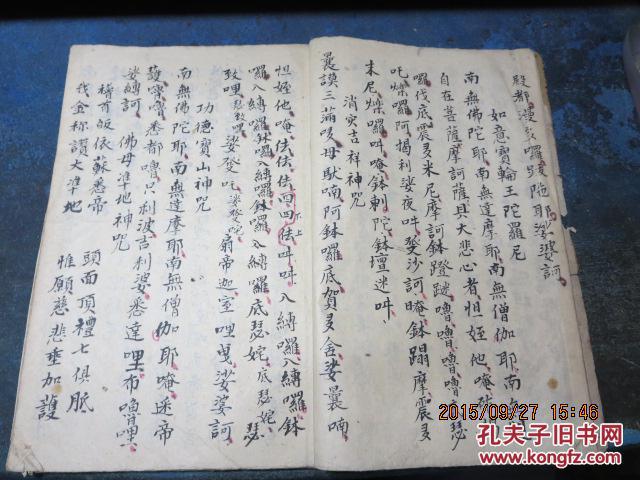 殿都漣多囉跛陁耶娑婆訶
如意寶輪王陀羅尼
南無佛陀耶南無達摩耶南無僧伽耶南無
自在菩薩摩訶薩具大悲心者怛姪他唵
囉伐底震多米尼摩訶鉢蹬謎嚕嚕嚕嚕底瑟
吒爍囉阿揭利娑夜吽癹沙訶唵鉢蹋摩震多
末尼爍囉吽唵鉢剌陀鉢壇迷吽
消灾吉祥神咒
曩謨三滿哆母馱喃阿鉢囉底賀多舍娑曩喃
怛姪他唵佉佉佉呬呬佉吽吽入嚩囉入嚩囉鉢
下上
囉入嚩囉鉢囉入嚩囉底瑟姹底瑟姹瑟
致哩瑟致哩娑癹吒娑癹吒扇帝迦室哩曳娑婆訶
功德寶山神咒
南無佛陀耶南無達摩耶南無僧伽耶唵迷帝
護嚕嚕悉都嚕只利波吉利婆悉達哩布嚕哩
娑嚩訶
佛母準地神咒
稽首皈依蘇悉帝
頭面頂禮七俱胝
我金称讚大準地
惟願慈悲垂加護
2015/09/27 15:46
孔夫子旧书网
KONGFZ.COM